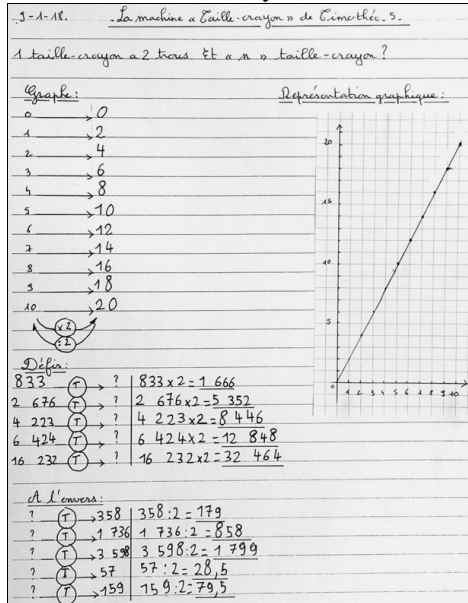 9-1-18. La machine « Taille-crayon » de Timothée. S.
1 taille-crayon a 2 trous. Et « n » taille-crayon ?
Graphe :
0 → 0
1 → 2
2 → 4
3 → 6
4 → 8
5 → 10
6 → 12
7 → 14
8 → 16
9 → 18
10 → 20
x 2
: 2
Représentation graphique :
20
15
10
5
0 1 2 3 4 5 6 7 8 9 10
Défis :
833 T → ? | 833 x 2 = 1 666
2 676 T → ? | 2 676 x 2 = 5 352
4 223 T → ? | 4 223 x 2 = 8 446
6 424 T → ? | 6 424 x 2 = 12 848
16 232 T → ? | 16 232 x 2 = 32 464
A l'envers :
? T → 358 | 358 : 2 = 179
? T → 1 736 | 1 736 : 2 = 858
? T → 3 598 | 3 598 : 2 = 1 799
? T → 57 | 57 : 2 = 28,5
? T → 159 | 159 : 2 = 79,5